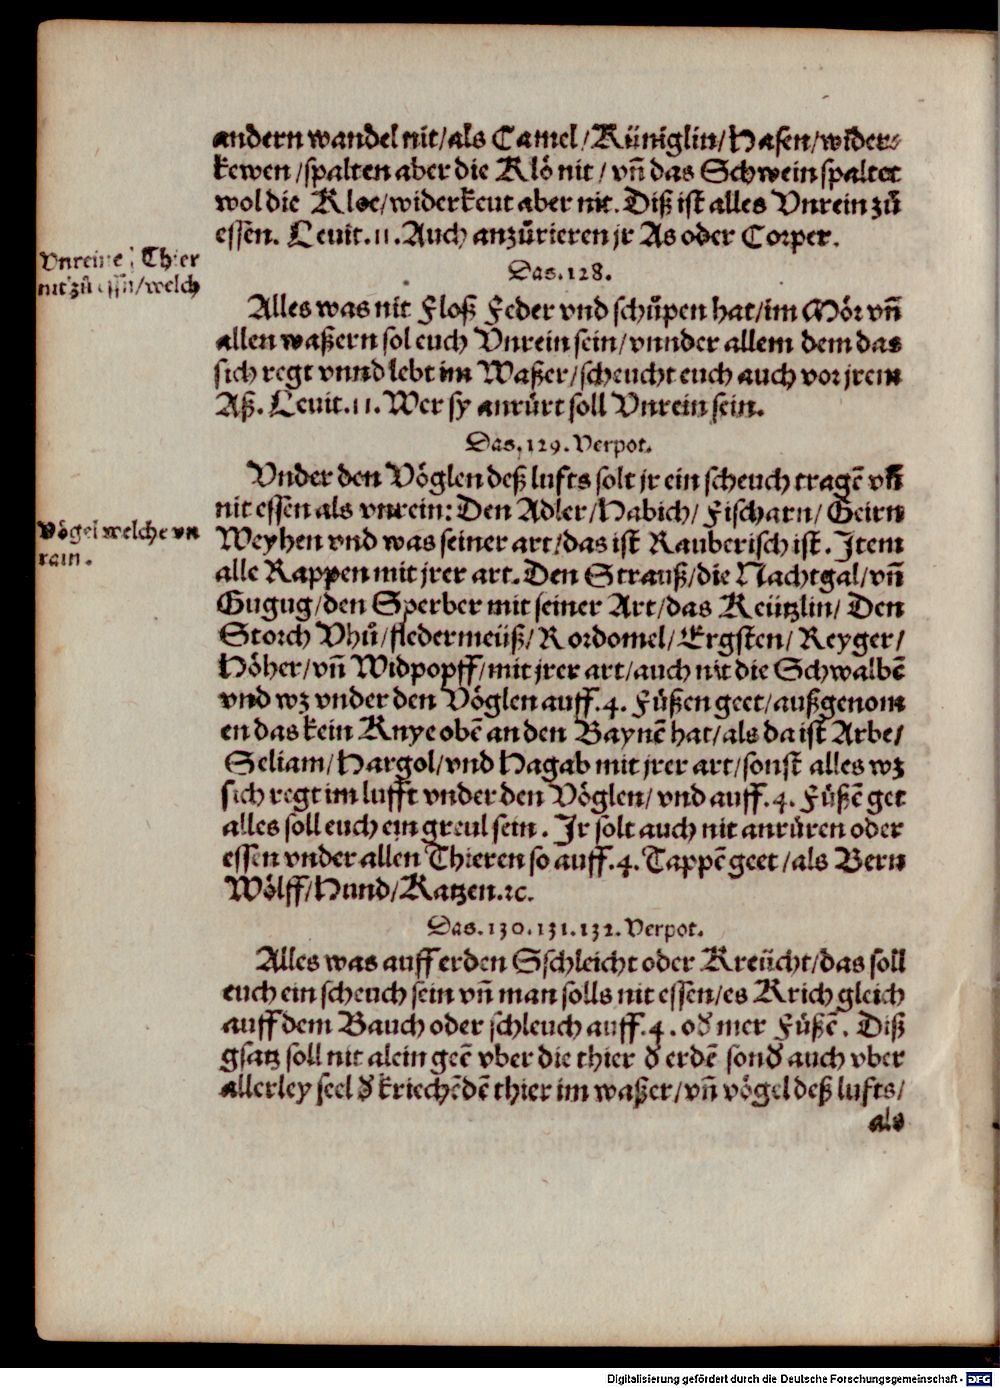 andern wandel nit/als Camel/Küniglin/Hasen/wider⸗
kewen/spalten aber die Klö nit/ vñ das Schwein spaltet
wol die Kloe/widerkeut aber nit. Diß ist alles Vnrein zů
essen. Leuit.11. Auch anzůrieren jr As oder Corper.
Vnreine Thier
nit zů essñ/welch
Das.128.
Alles was nit Floß Feder vnd schůpen hat/im Mör vñ
allen waßern sol euch Vnrein sein/vnnder allem dem das
sich regt vnnd lebt im Waßer/scheucht euch auch vor jrem
Aß. Leuit.11. Wer sy anrůrt soll Vnrein sein.
Das.129. Verpot.
Vnder den Vöglen deß lufts solt jr ein scheuch tragē vñ
nit essen als vnrein: Den Adler/Habich/ Fischarn/ Geirn
Vögel welche vn
rain.
Weyhen vnd was seiner art/das ist Rauberisch ist. Item
alle Rappen mit jrer art. Den Strauß/die Nachtgal/vñ
Gugug/den Sperber mit seiner Art/das Keützlin/ Den
Storch Vhů/fledermeüß/Rordomel/Ergsten/Reyger/
Höher/vñ Widpopff/mit jrer art/auch nit die Schwalbē
vnd wz vnder den Vöglen auff.4. Füßen geet/außgenom
en das kein Knye obē an den Baynē hat/als da ist Arbe/
Seliam/Hargol/vnd Hagab mit jrer art/sonst alles wz
sich regt im lufft vnder den Vöglen/ vnd auff.4. Füßē get
alles soll euch ein greul sein. Ir solt auch nit anrůren oder
essen vnder allen Thieren so auff.4. Tappē geet/als Bern
Wölff/Hund/Katzen.ꝛc.
Das.130.131.132. Verpot.
Alles was auff erden Sschleicht oder Kreücht/das soll
euch ein scheuch sein vñ man solls nit essen/es Krich gleich
auff dem Bauch oder schleuch auff.4. oď mer Füßē. Diß
gsatz soll nit alein geē vber die thier ď erdē sonď auch vber
allerley seel ď kriechēdē thier im waßer/vñ vögel deß lufts/
als
Digitalisierung gefördert durch die Deutsche Forschungsgemeinschaft - DFG